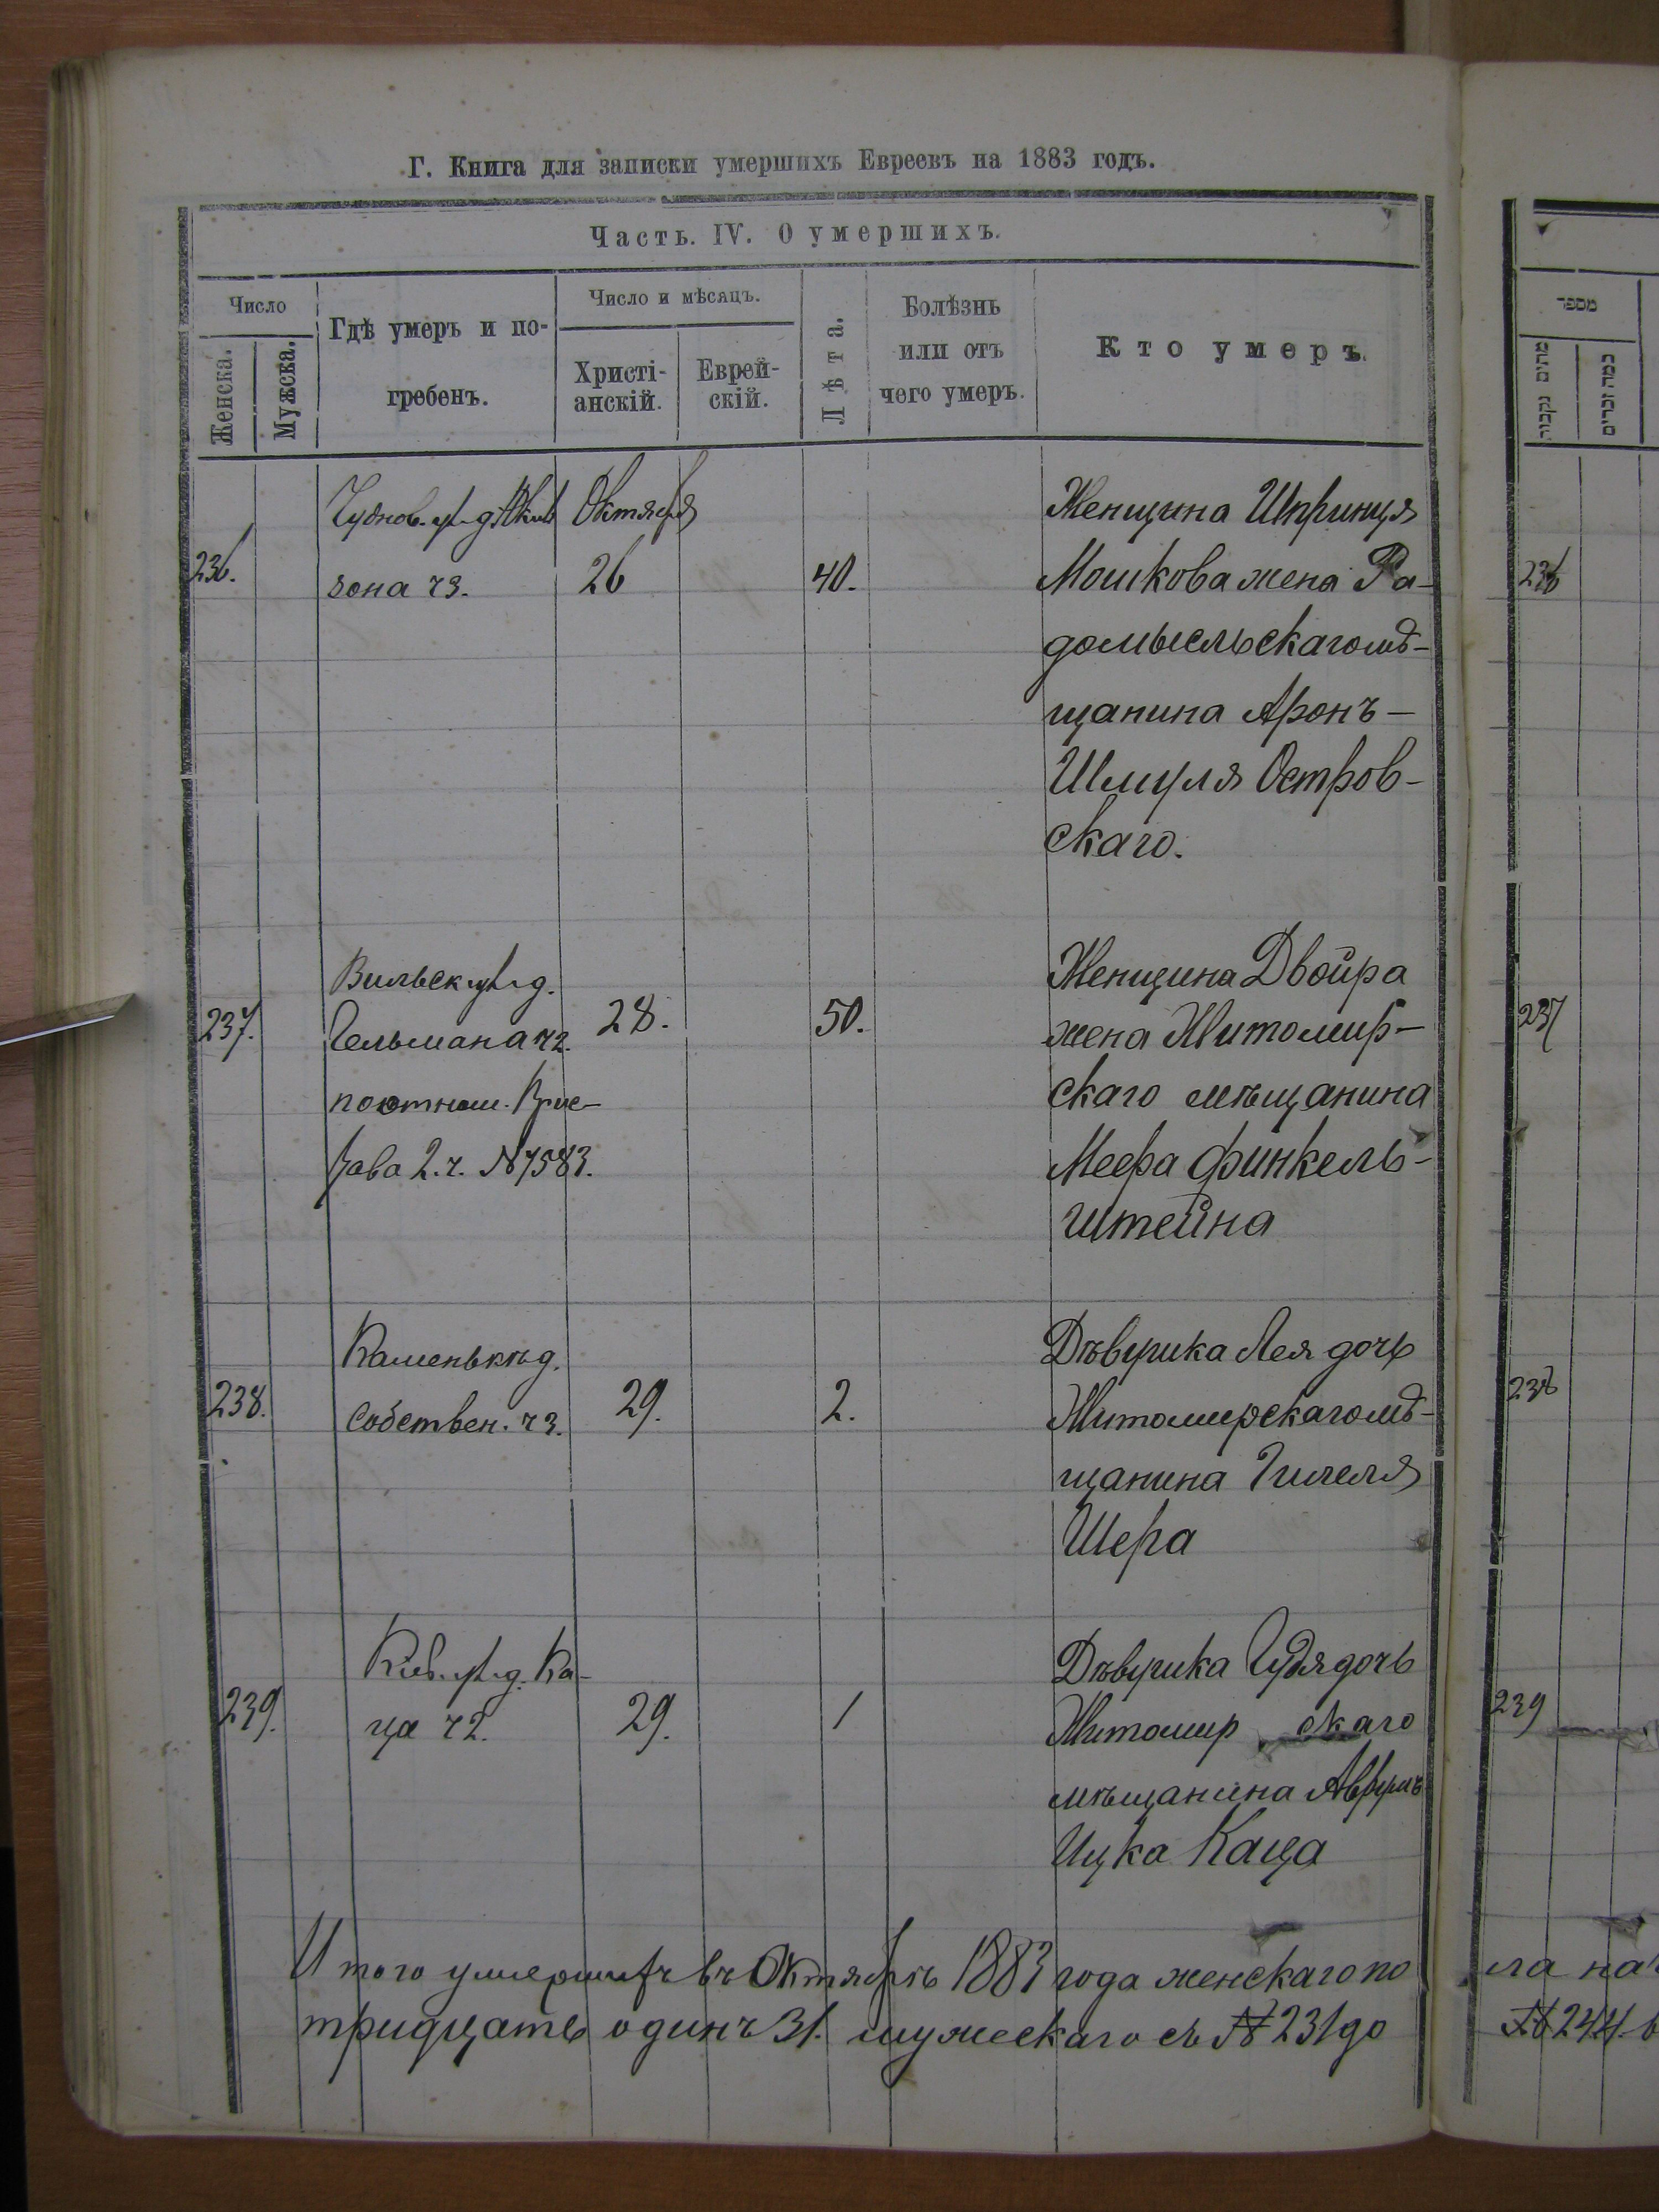 Г. Книга для записки умершихъ Евреевъ на 1883 годъ.
Часть. IV. О умершихъ.
Число
Женска.
Мужска.
Гдѣ умеръ и по-
гребенъ.
Число и мѣсяцъ.
Христі-
анскій.
Еврей-
скій.
Лѣта.
Болѣзнь
или отъ
чего умеръ.
Кто умеръ.
מספר
Октября
236.
зона ч3.
26
40.
Женщина Шпринця
Мошкова жена Ра-
домысльскаго мѣ-
щанина Аронъ-
Шмуля Остров-
скаго.
236
Вильск ул. д.
237.
Гельмана ч2.
28.
50.
2.ч. № 7583.
Женщина Двойра
жена Житомир-
скаго мѣщанина
Меера Финкель-
штейна
237
д.
238.
Собствен. ч3.
29.
2.
Дѣвушка Лея дочь
Житомирскаго мѣ-
щанина Гилеля
Шера
238
Киев. ул. д. Ка-
239.
ца ч2.
29.
1
Дѣвушка дочь
Житомир скаго
мѣщанина
Ицка Каца
239
Итого умершихъ въ Октябрѣ 1883 года женскаго по
тридцать одинъ 31. мужескаго съ № 231 до
ла
№ 244.